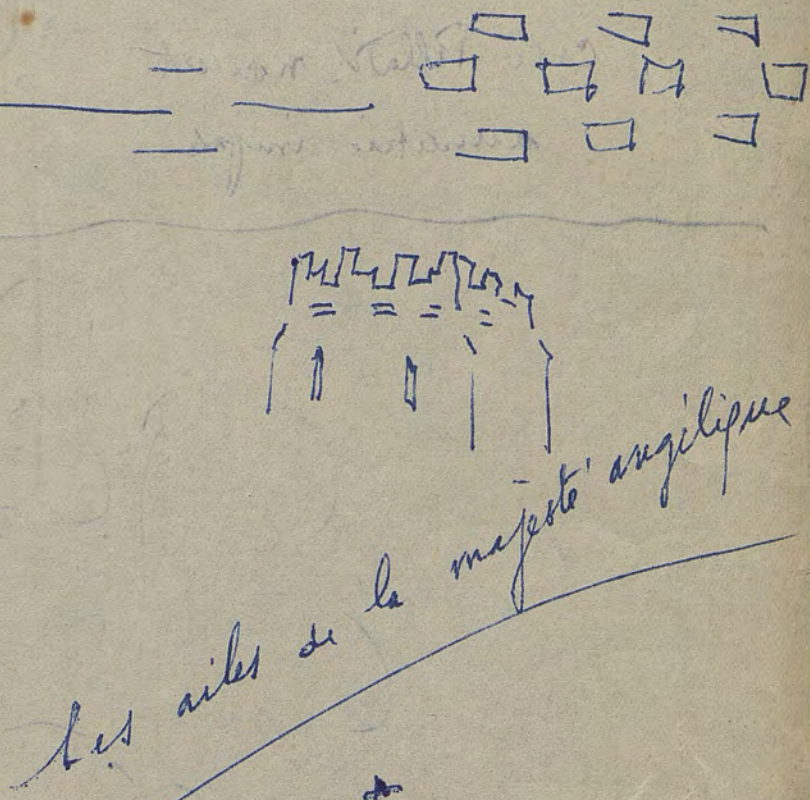 Les ailes de la majesté angélique